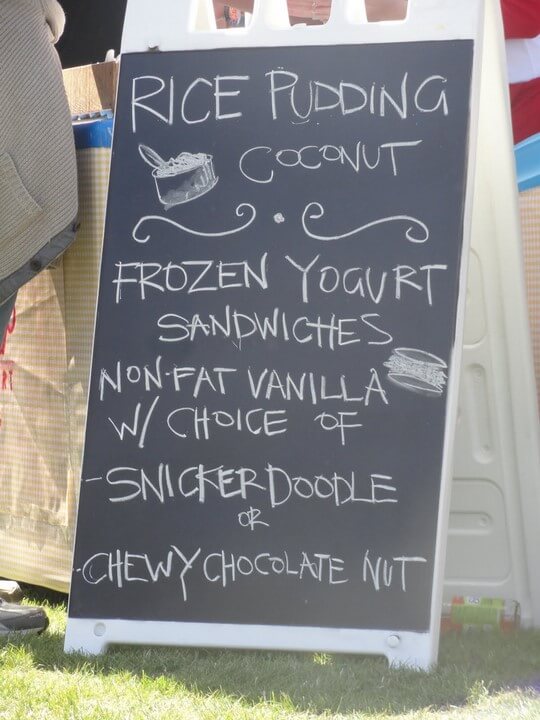 RICE PUDDING
COCONUT
FROZEN YOGURT
SANDWICHES
NON-FAT VANILLA
W/ CHOICE OF
-SNICKERDOODLE
OR
-CHEWY CHOCOLATE NUT